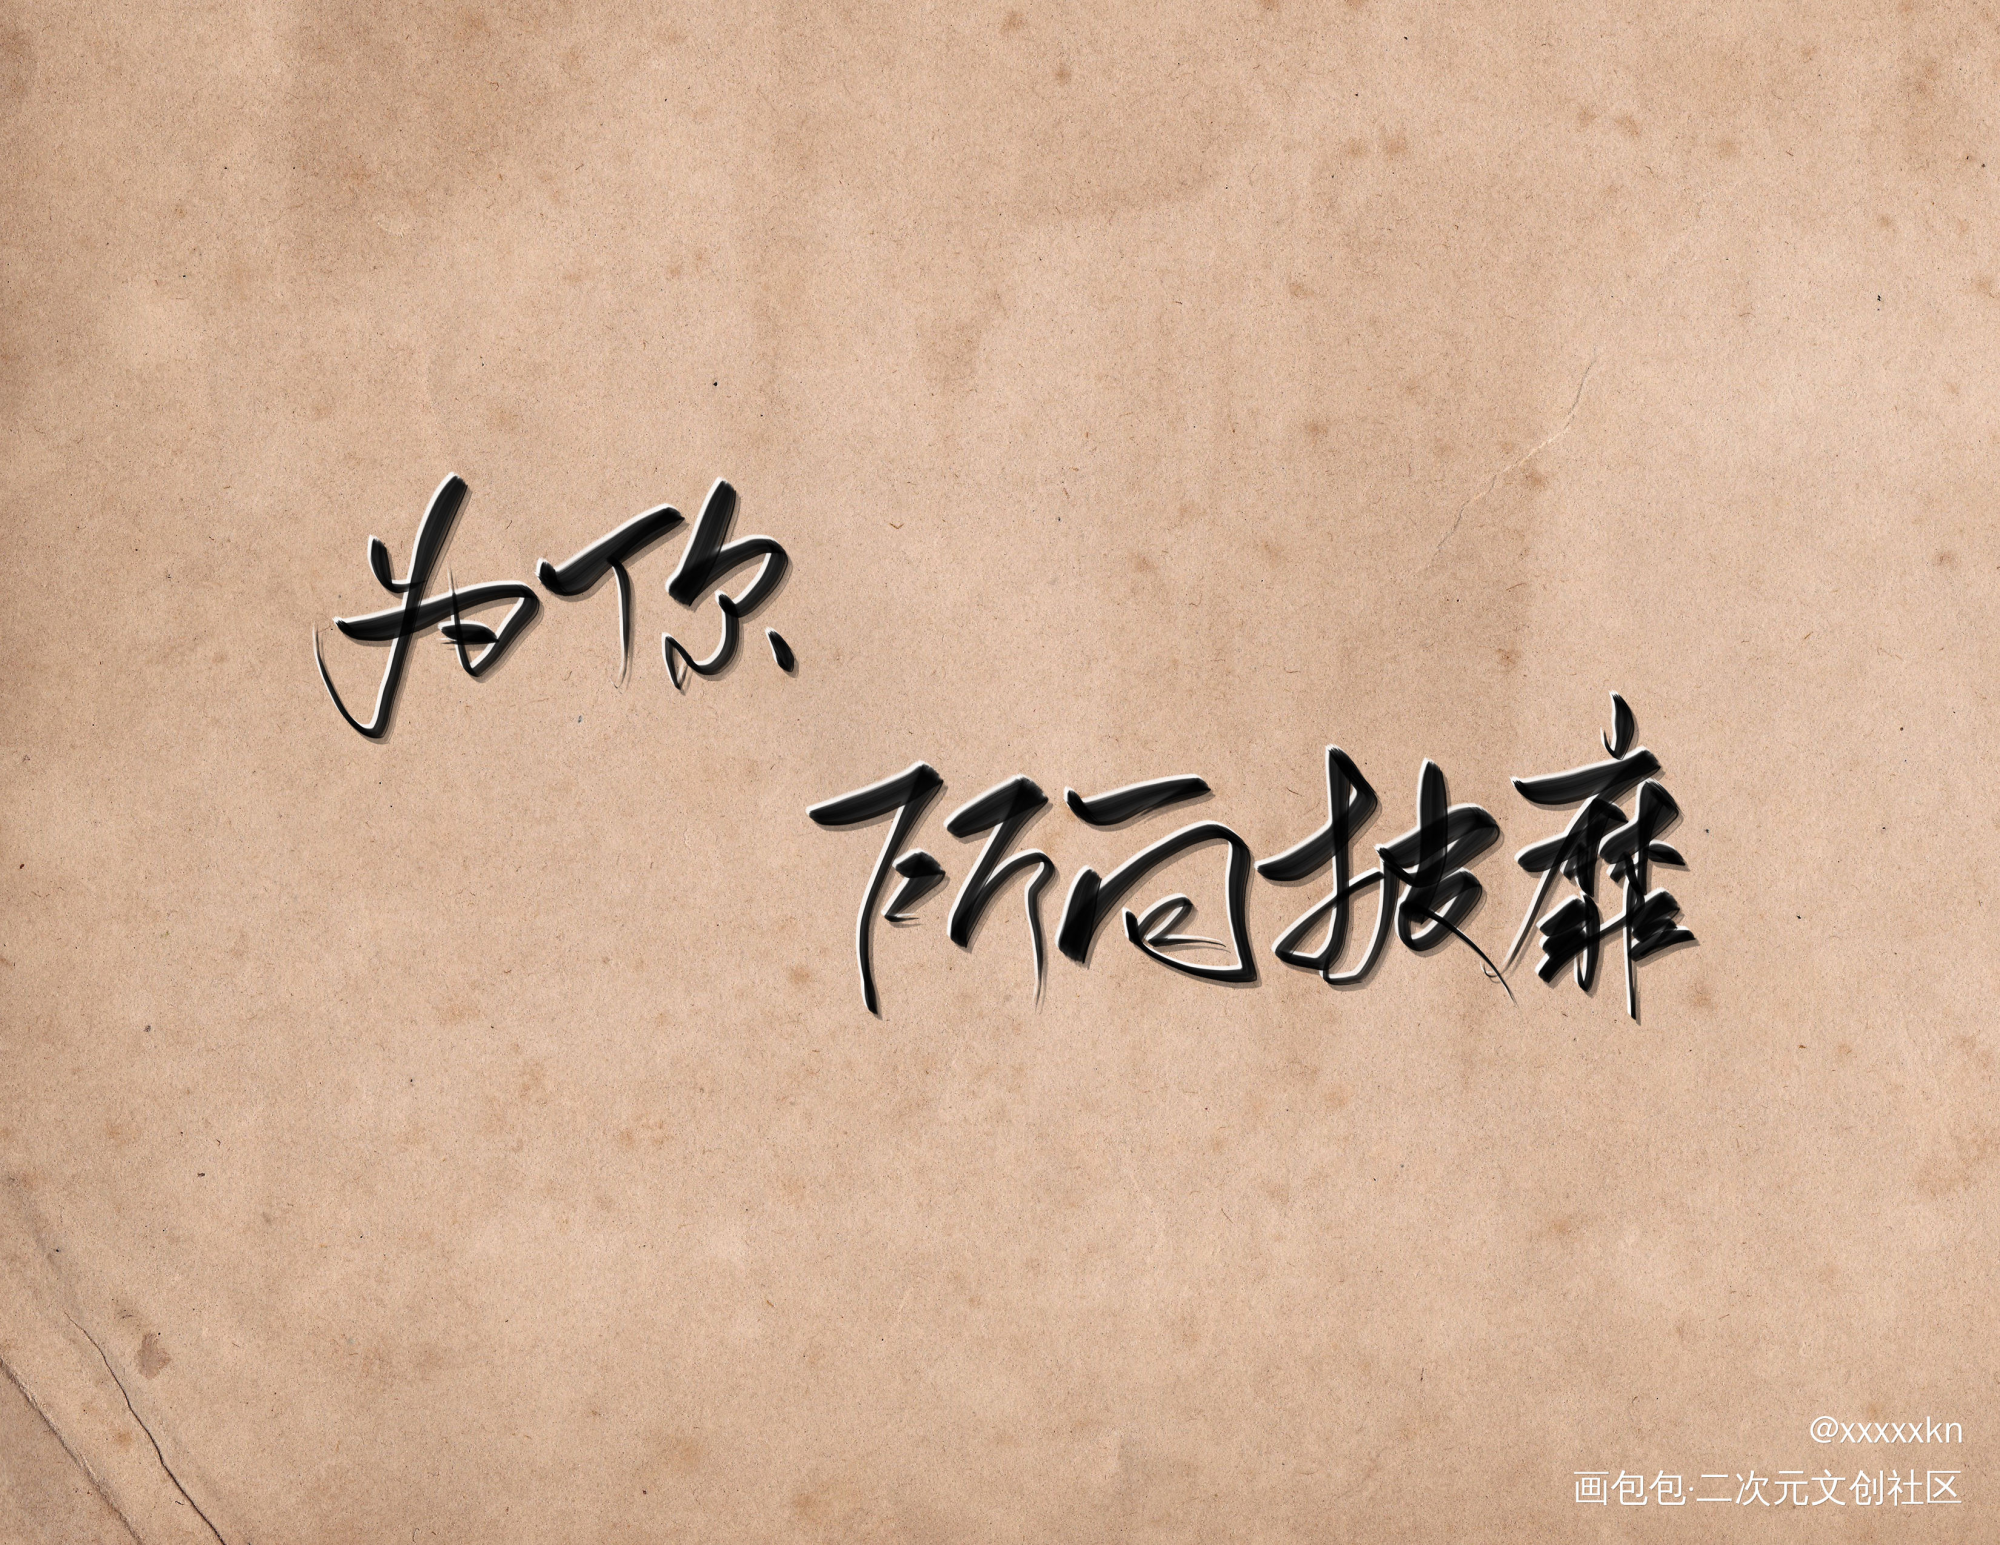 为你
所向披靡
@xxxxxkn
画包包·二次元文创社区